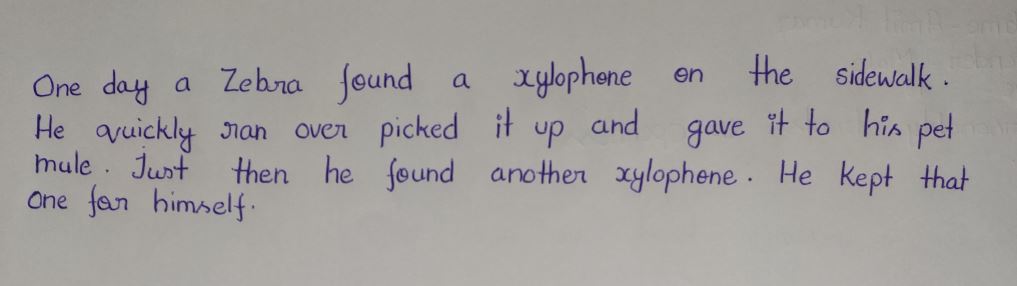 One day a Zebra found a xylophone on the sidewalk.
He quickly ran over picked it up and gave it to his pet
mule. Just then he found another xylophone. He kept that
one for himself.